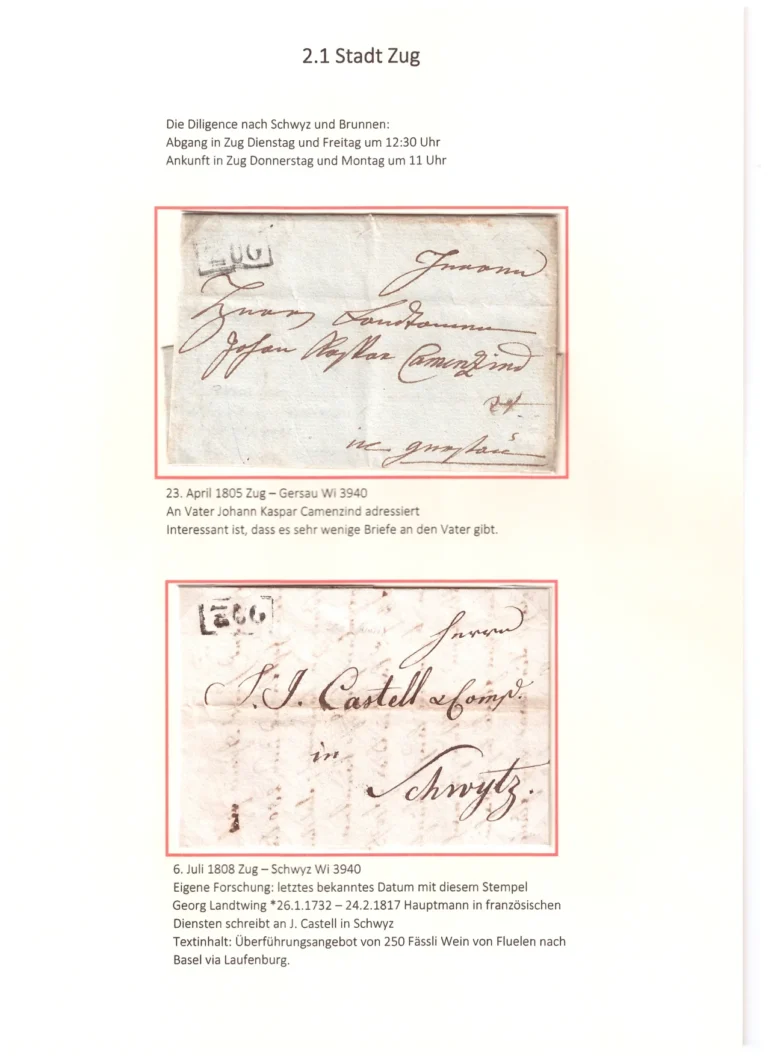 2.1 Stadt Zug
Die Diligence nach Schwyz und Brunnen:
Abgang in Zug Dienstag und Freitag um 12:30 Uhr
Ankunft in Zug Donnerstag und Montag um 11 Uhr
ZUG
Herrn
Landtamman
Johan Kaspar Camenzind
in
23. April 1805 Zug – Gersau Wi 3940
An Vater Johann Kaspar Camenzind adressiert
Interessant ist, dass es sehr wenige Briefe an den Vater gibt.
ZUG
Herrn
J. Castell & Comp.
in
Schwytz.
6. Juli 1808 Zug – Schwyz Wi 3940
Eigene Forschung: letztes bekanntes Datum mit diesem Stempel
Georg Landtwing *26.1.1732 – 24.2.1817 Hauptmann in französischen
Diensten schreibt an J. Castell in Schwyz
Textinhalt: Überführungsangebot von 250 Fässli Wein von Fluelen nach
Basel via Laufenburg.